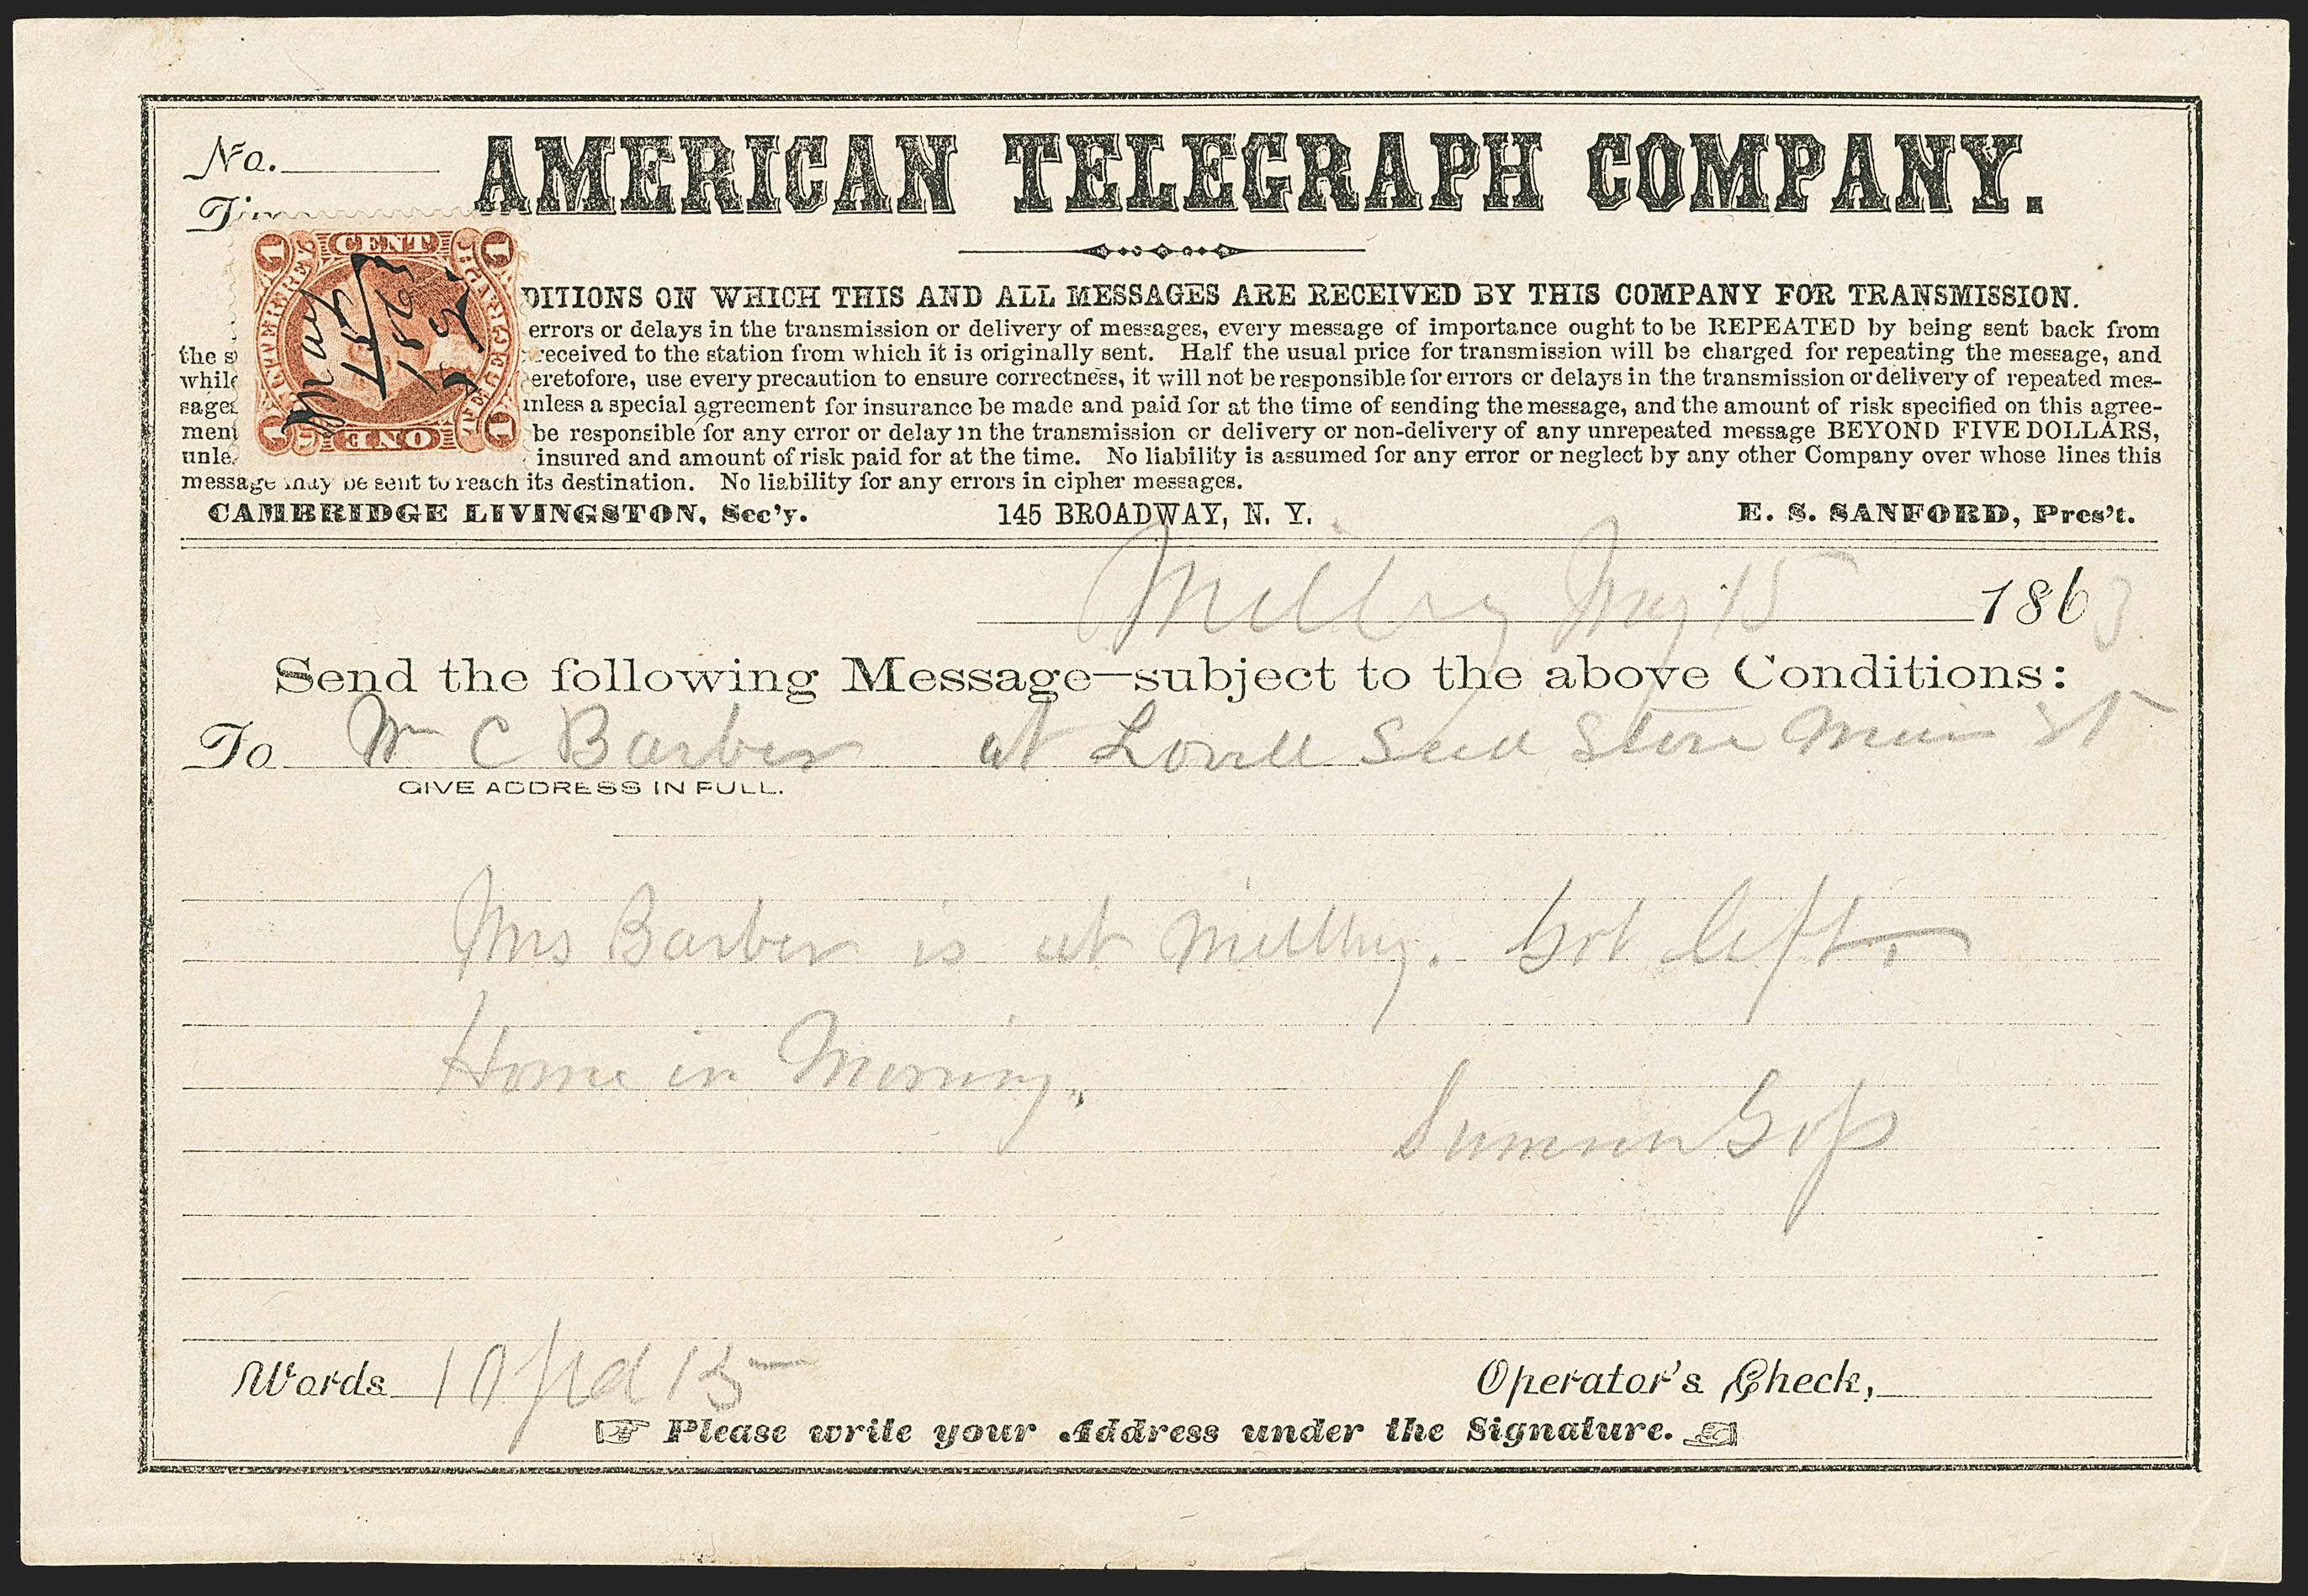 No.
AMERICAN TELEGRAPH COMPANY.
1 CENT 1
TELEGRAPH
1 ONE 1
May
15
1863
DITIONS ON WHICH THIS AND ALL MESSAGES ARE RECEIVED BY THIS COMPANY FOR TRANSMISSION.
errors or delays in the transmission or delivery of messages, every message of importance ought to be REPEATED by being sent back from
the s received to the station from which it is originally sent. Half the usual price for transmission will be charged for repeating the message, and
while eretofore, use every precaution to ensure correctness, it will not be responsible for errors or delays in the transmission or delivery of repeated mes-
sages unless a special agreement for insurance be made and paid for at the time of sending the message, and the amount of risk specified on this agree-
ment be responsible for any error or delay in the transmission or delivery or non-delivery of any unrepeated message BEYOND FIVE DOLLARS,
unle insured and amount of risk paid for at the time. No liability is assumed for any error or neglect by any other Company over whose lines this
message may be sent to reach its destination. No liability for any errors in cipher messages.
CAMBRIDGE LIVINGSTON, Sec'y. 145 BROADWAY, N. Y. E. S. SANFORD, Pres't.
Millbury May 15 1863
Send the following Message—subject to the above Conditions:
To Wm C Barber at Lovell Seed Store Main St
GIVE ADDRESS IN FULL.
Mrs Barber is at Millbury. Got left.
Home in Morning.
Words 10 pd 15
Operator's Check,
Please write your Address under the Signature.